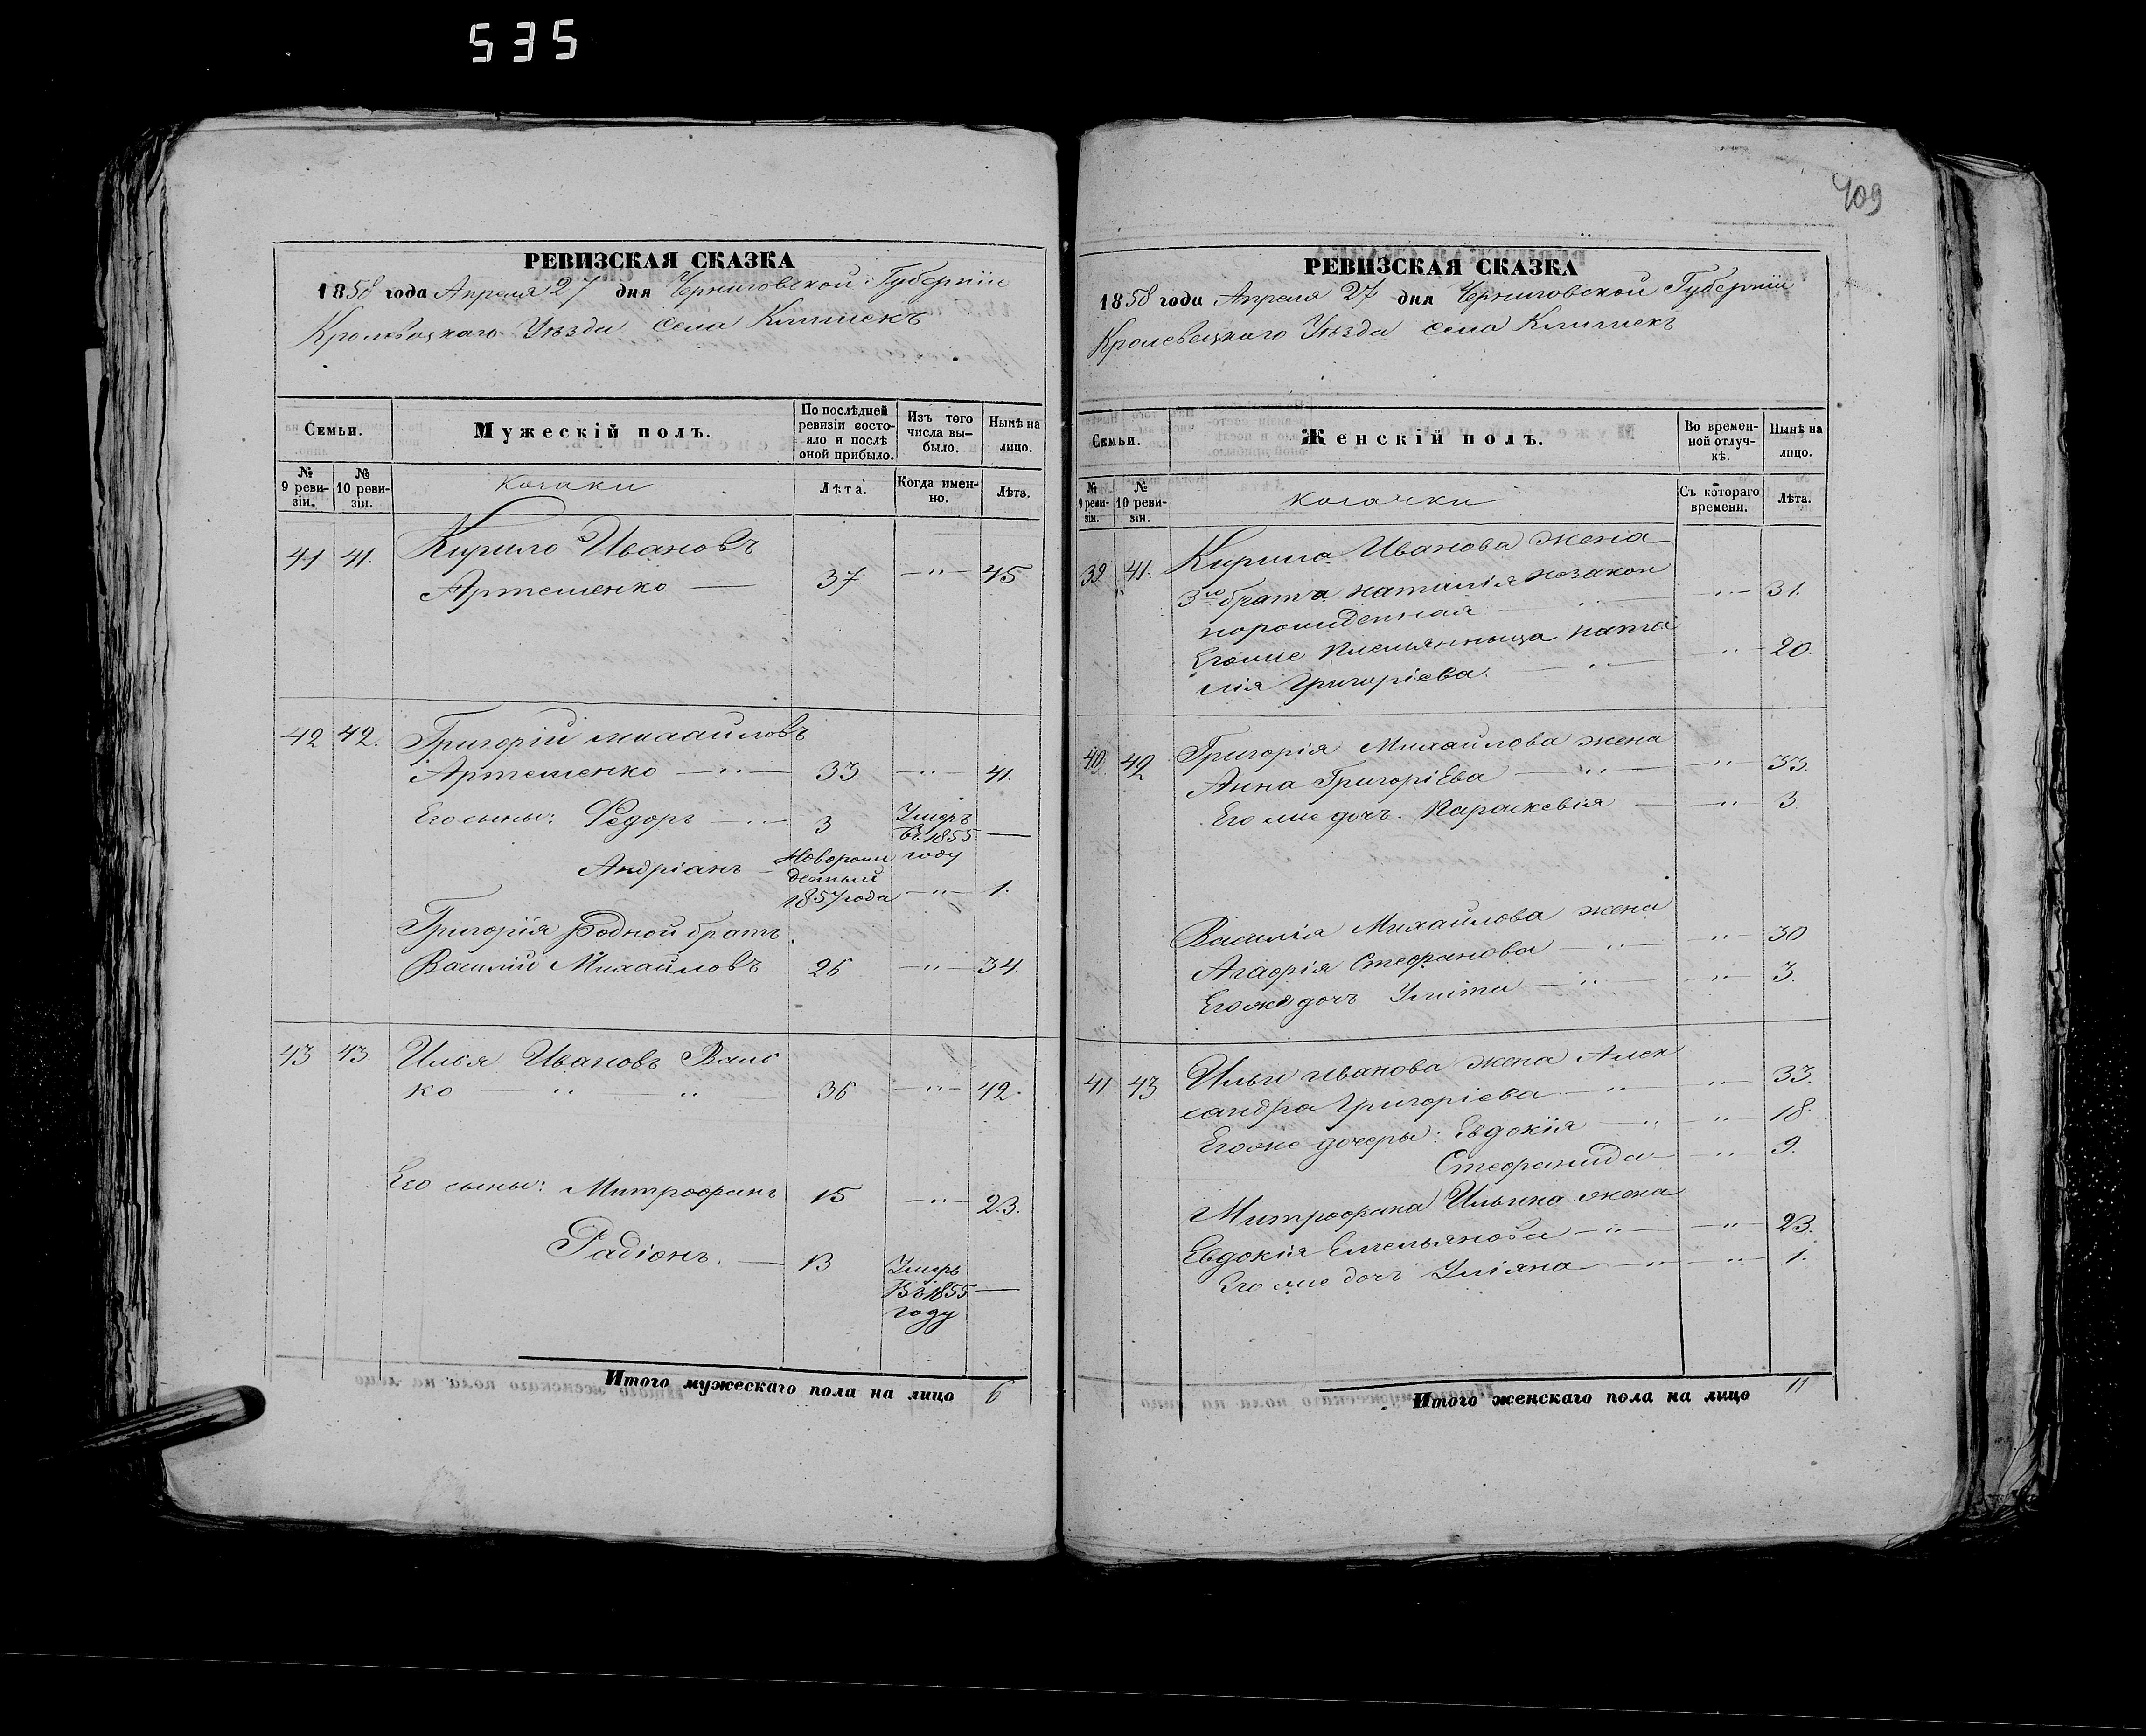 535
РЕВИЗСКАЯ СКАЗКА
1858 года Апреля 27 дня Черниговской Губерніи
Кролевецкаго Уѣзда Села Клишекъ
Семьи.
Мужескій полъ.
По послѣдней ревизіи состо-
яло и послѣ
оной прибыло.
Изъ того
числа вы-
было.
Нынѣ на
лицо.
№
9 реви-
зіи.
№
10 реви-
зіи.
Козаки
Лѣта.
Когда имен-
но.
Лѣта.
41 41. Кирило Ивановъ
Артеменко — 37 — " — 45
42 42. Григорій Михайловъ
Артеменко — " — 33 — " — 41.
Его сыны: Федоръ — " — 3 Умеръ
въ 1855 —
году
Андріанъ — Неворож
денный
1857 года — " — 1.
Григорія родной братъ
Василій Михайловъ 26 — " — 34.
43 43 Илья Ивановъ Валь
ко — " — " — 36 — " — 42.
Его сыны: Митрофанъ 15 — " — 23.
Радіонъ. — 13 Умеръ
Въ 1855 —
году
Итого мужескаго пола на лицо 6
409
РЕВИЗСКАЯ СКАЗКА
1858 года Апреля 27 дня Черниговской Губерніи
Кролевецкаго Уѣзда села Клишекъ
Семьи.
Женскій полъ.
Во времен-
ной отлуч-
кѣ.
Нынѣ на
лицо.
№
9 реви-
зіи.
№
10 реви-
зіи.
козачки
Съ котораго
времени.
Лѣта.
39 41. Кирила Иванова жена
3го брата Наталія незакон
норожденная — " — — " — 31.
Егоже племянныца Ната
лія Григоріева. — " — — " — 20.
40. 42 Григорія Михайлова жена
Анна Григоріева — " — — " — 33.
Егоже дочь. Параскевія — — " — 3
Василія Михайлова жена
Агафія Стефанова — " — — " — 30
Егоже дочь Улита — " — — " — 3.
41 43 Ильи Иванова жена Алек
сандра Григоріева — " — " — 33.
Егоже дочеры: Евдокія — " — " — 18.
Стефанида — — " — 9.
Митрофана Ильина жена
Евдокія Емельянова — " — — " — 23.
Егоже дочь Уліяна — " — — " — 1.
Итого женскаго пола на лицо 11